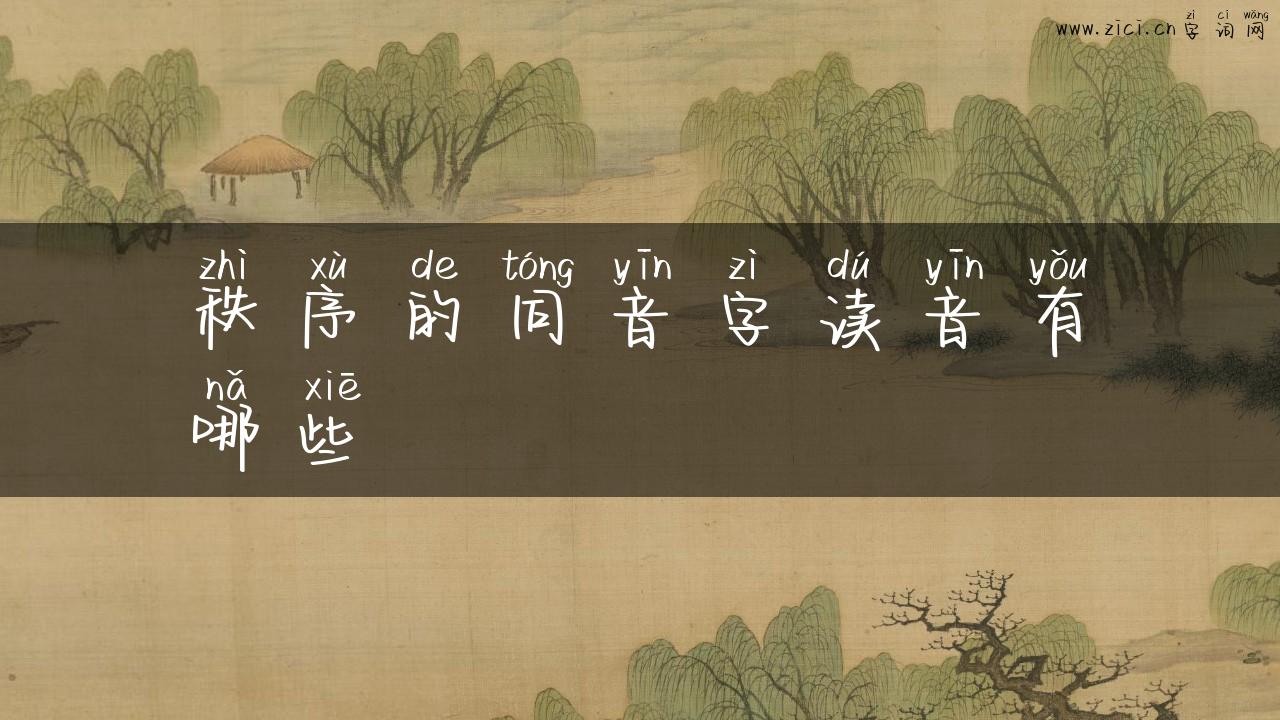 zì cí wǎng
www.zici.cn字词网
zhì xù de tóng yīn zì dú yīn yǒu
秩序的同音字读音有
nǎ xiē
哪些